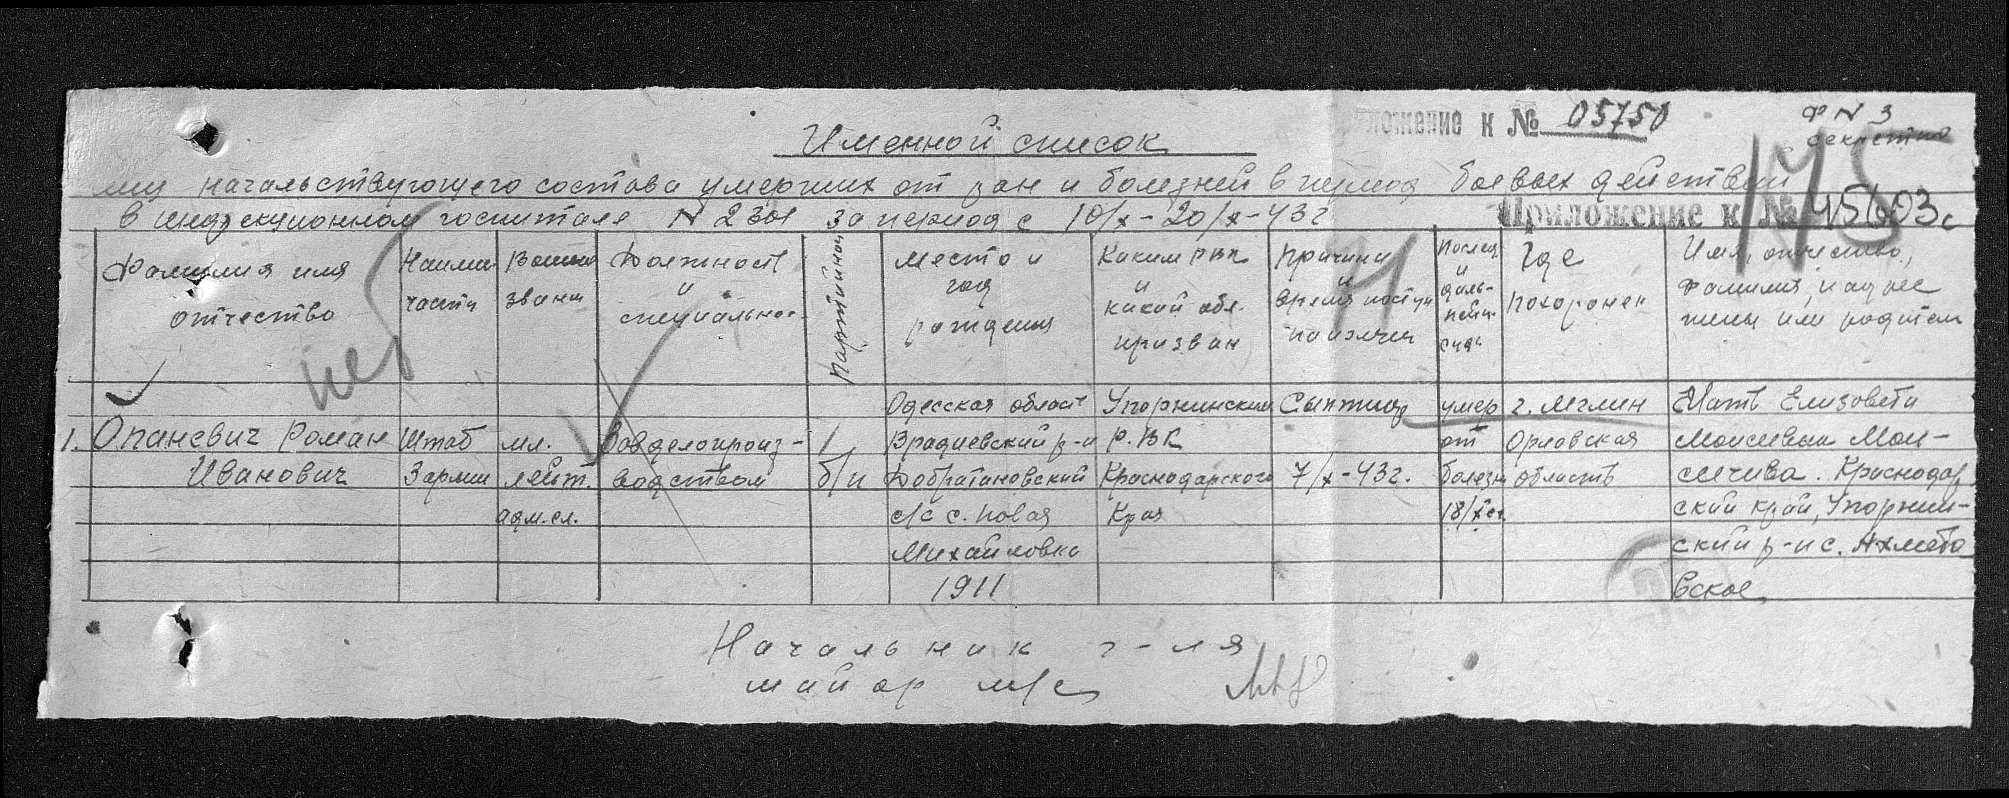 ложение к № 05750
Ф N 3
секретно
Именной список
начальствующего состава умерших от ран и болезней в период боевых действий
в инфекционном госпитале N 2301 за период с 10/x-20/x-43г
Приложение к № 45603с
145
нет
Фамилия имя отчество
Наимен части
Воинск звани
Должность и специальнос-
Партийность
Место и год рождения
Каким РВК и какой обл. призван
Причина и время поступ на излечен
Где похоронен
Имя, отчество, фамилия, и адрес жены или родители
1. Опаневич Роман Иванович
Штаб 3 армии
мл. лейт. адм.сл.
Завделопроиз-водством
б/п
Одесская область Врадиевский р-н Добратановский с/с с. Новая Михайловка 1911
Упорнинским Р.ВК Краснодарского Края
7/x-43г.
умер от болезни 18/x
г. Мглин Орловская область
Мать Елизовета Краснодар ский край, Упорнин-ский р-н с. Ахмето вское
Начальник г-ля
майор м/с